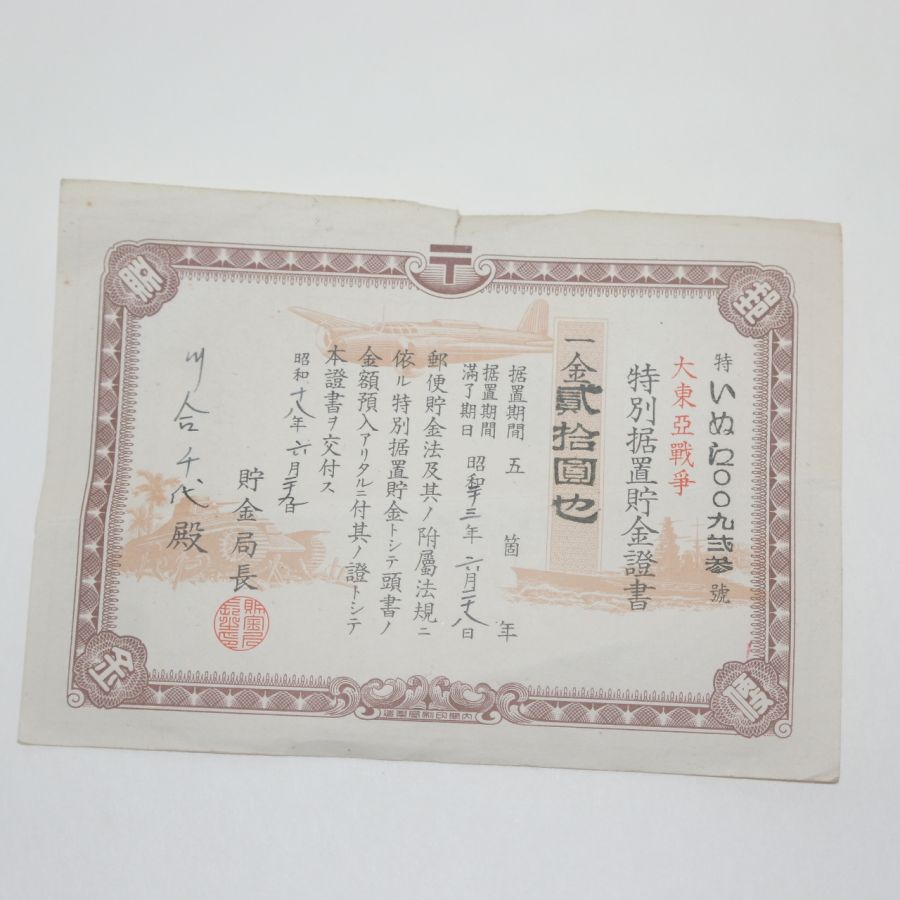 〒
郵
便
貯
金
特 いぬに〇〇九弐参 號
大東亞戰爭
特別据置貯金證書
一金貳拾圓也
据置期間 五箇年
据置期間滿了期日 昭和廿三年六月二十八日
郵便貯金法及其ノ附屬法規ニ
依ル特別据置貯金トシテ頭書ノ
金額預入アリタルニ付其ノ證トシテ
本證書ヲ交付ス
昭和十八年六月二十九日
貯金局長
川合千代殿
內閣印刷局製造